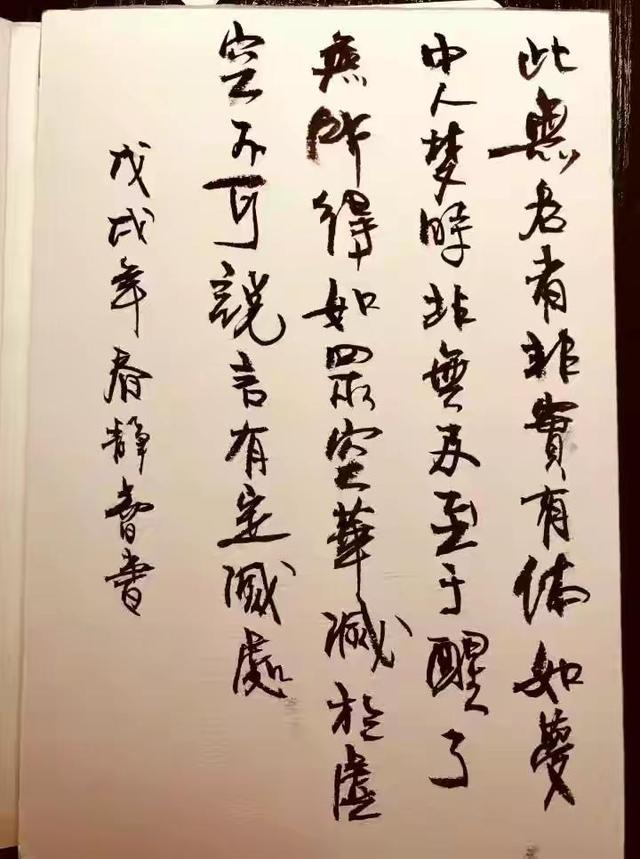 此無名者非實有体如夢
中人梦時非無及至于醒了
無所得如眾空華滅於虛
空不可說言有定滅處
戊戌年春静書